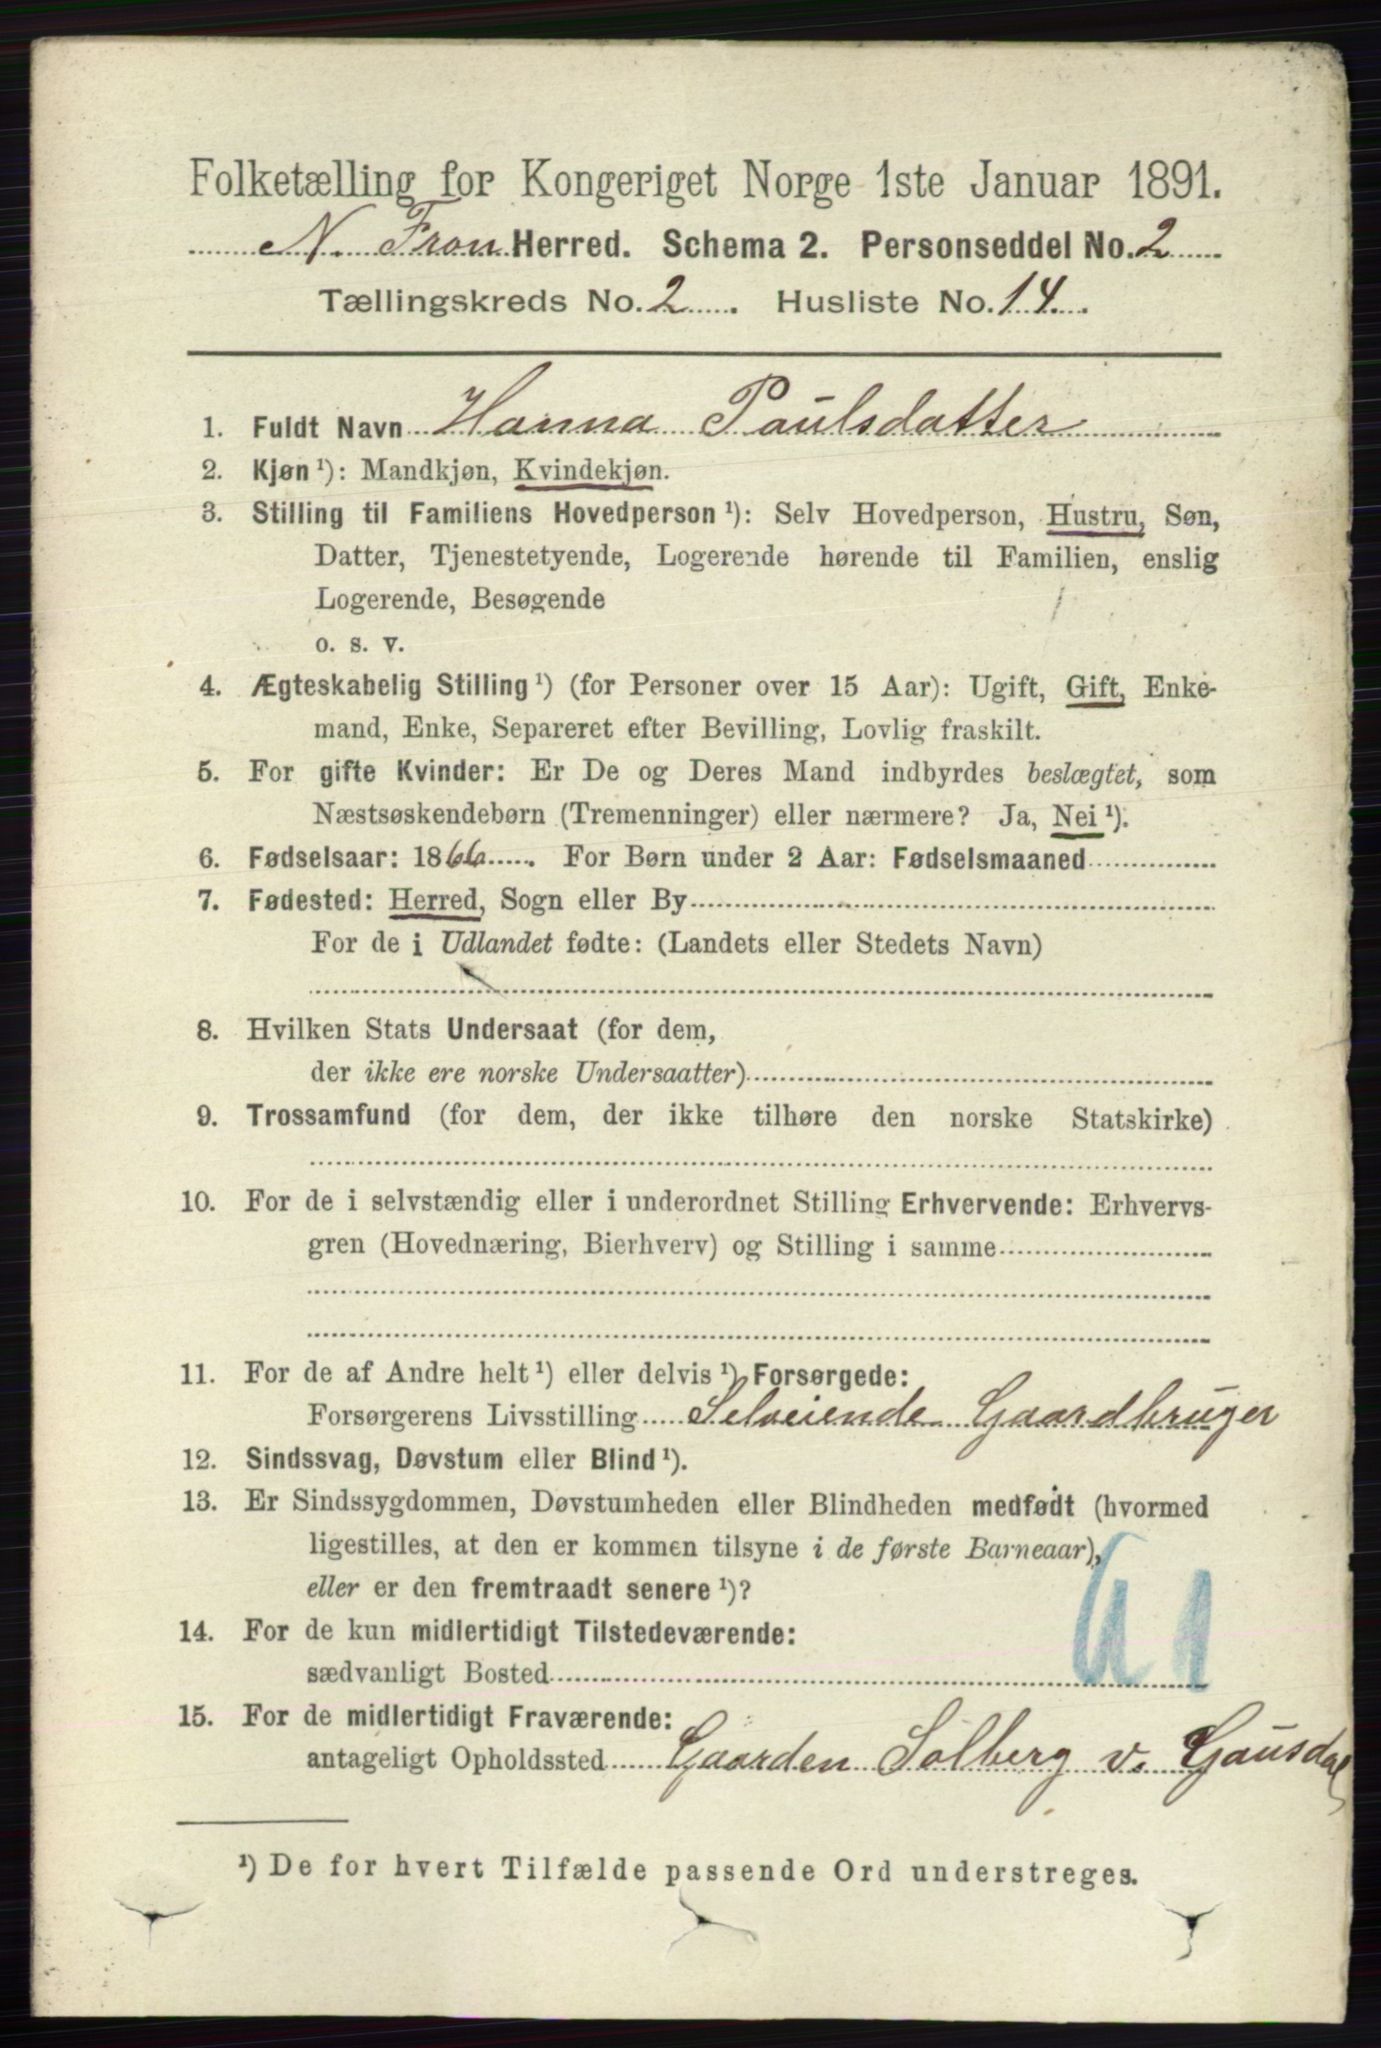 Folketælling for Kongeriget Norge 1ste Januar 1891.
N. Fron Herred. Schema 2. Personseddel No. 2
Tællingskreds No. 2. Husliste No. 14.
1. Fuldt Navn Hanna Paulsdatter
2. Kjøn ¹): Mandkjøn, Kvindekjøn.
3. Stilling til Familiens Hovedperson ¹): Selv Hovedperson, Hustru, Søn,
Datter, Tjenestetyende, Logerende hørende til Familien, enslig
Logerende, Besøgende
o. s. v.
4. Ægteskabelig Stilling ¹) (for Personer over 15 Aar): Ugift, Gift, Enke-
mand, Enke, Separeret efter Bevilling, Lovlig fraskilt.
5. For gifte Kvinder: Er De og Deres Mand indbyrdes beslægtet, som
Næstsøskendebørn (Tremenninger) eller nærmere? Ja, Nei ¹).
6. Fødselsaar: 1866. For Børn under 2 Aar: Fødselsmaaned
7. Fødested: Herred, Sogn eller By
For de i Udlandet fødte: (Landets eller Stedets Navn)
8. Hvilken Stats Undersaat (for dem,
der ikke ere norske Undersaatter)
9. Trossamfund (for dem, der ikke tilhøre den norske Statskirke)
10. For de i selvstændig eller i underordnet Stilling Erhvervende: Erhvervs-
gren (Hovednæring, Bierhverv) og Stilling i samme
11. For de af Andre helt ¹) eller delvis ¹) Forsørgede:
Forsørgerens Livsstilling Selveiende Gaardbruger
12. Sindssvag, Døvstum eller Blind ¹).
13. Er Sindssygdommen, Døvstumheden eller Blindheden medfødt (hvormed
ligestilles, at den er kommen tilsyne i de første Barneaar),
eller er den fremtraadt senere ¹)?
14. For de kun midlertidigt Tilstedeværende:
sædvanligt Bosted
15. For de midlertidigt Fraværende:
antageligt Opholdssted Gaarden Solberg v. Gausdal
¹) De for hvert Tilfælde passende Ord understreges.